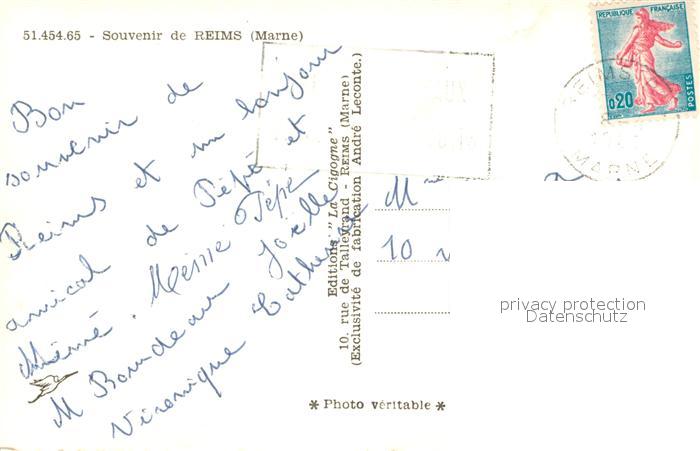 51.454.65 - Souvenir de REIMS (Marne)
Bon
souvenir de
Reims et un bonjour
amical de Pépé et
Mémé. Mémé Pépé
M Bourdeau Joëlle
Véronique Catherine
Editions "La Cigogne"
10, rue de Talleyrand - REIMS (Marne)
(Exclusivité de fabrication André Leconte.)
* Photo véritable *
REPUBLIQUE FRANÇAISE
0,20
POSTES
REIMS
MARNE
M
10
privacy protection
Datenschutz